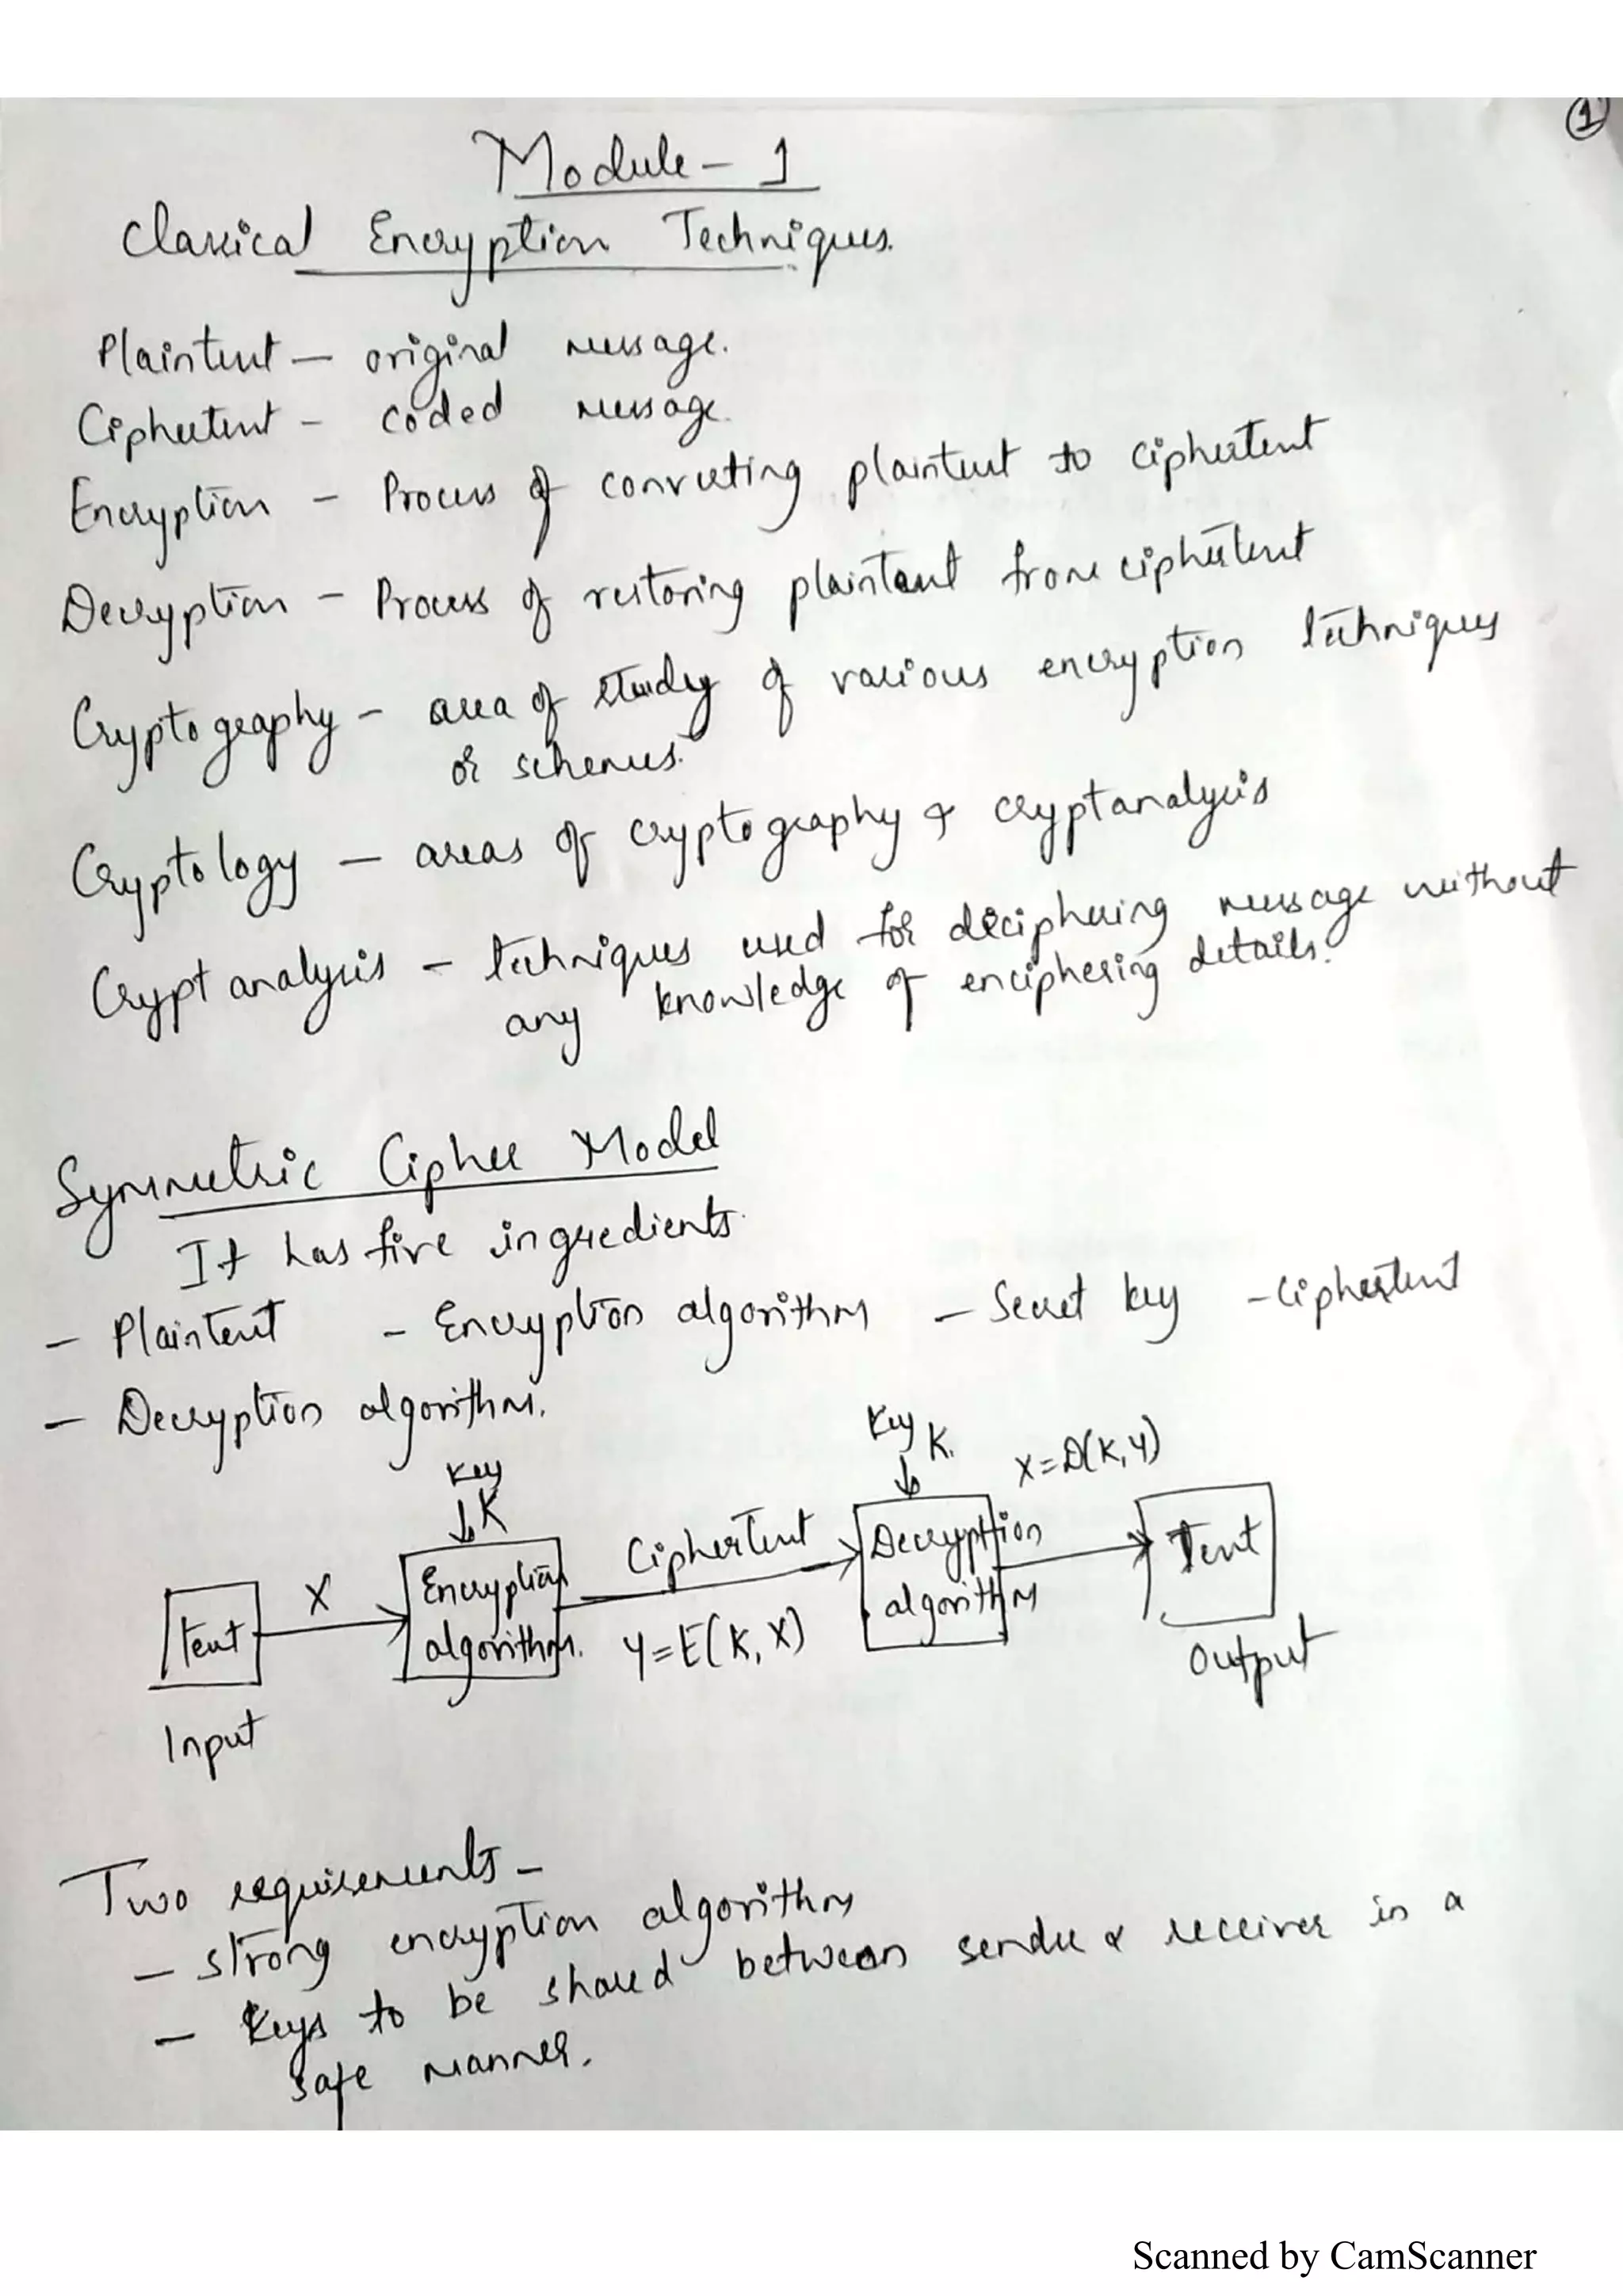 1
Module - 1
Classical Encryption Techniques.
Plaintext — original message.
Ciphertext - coded message.
Encryption - Process of converting plaintext to ciphertext
Decryption - Process of restoring plaintext from ciphertext
Cryptography - area of study of various encryption techniques
or schemes.
Cryptology — areas of cryptography & cryptanalysis
Cryptanalysis - techniques used for deciphering message without
any knowledge of enciphering details.
Symmetric Cipher Model
It has five ingredients.
- Plaintext - Encryption algorithm - Secret key - Ciphertext
- Decryption algorithm.
Key K
Key K.
X=D(K,Y)
Text
X
Encryption algorithm.
Ciphertext
Y=E(K,X)
Decryption algorithm
Text
Input
Output
Two requirements -
- strong encryption algorithm
- Keys to be shared between sender & receiver in a
safe manner.
Scanned by CamScanner